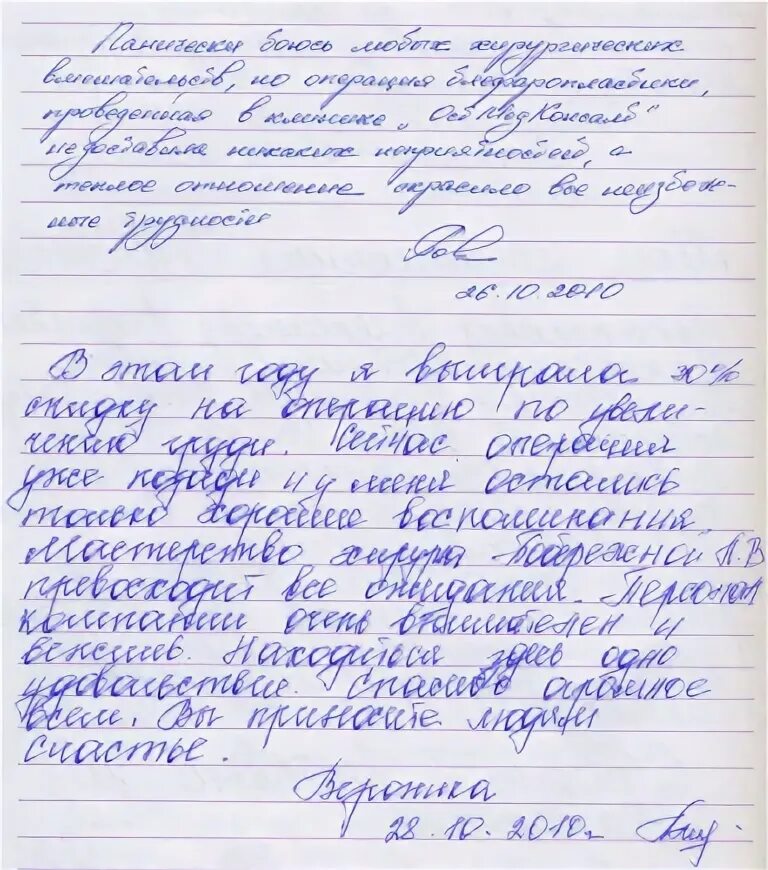 Панически боюсь любых хирургических
вмешательств, но операция блефаропластики,
проведенная в клинике „ОстМедКонсалт"
не доставила никаких неприятностей, а
теплое отношение скрасило все неизбеж-
ные трудности
26.10.2010
В этом году я выиграла 30%
скидку на операцию по увели-
чению груди. Сейчас операция
уже позади и у меня остались
только хорошие воспоминания.
Мастерство хирурга Побережной А.В
превосходит все ожидания. Персонал
компании очень внимателен и
вежлив. Находиться здесь одно
удовольствие. Спасибо огромное
всем. Вы приносите людям
счастье.
Вероника
28.10.2010г.